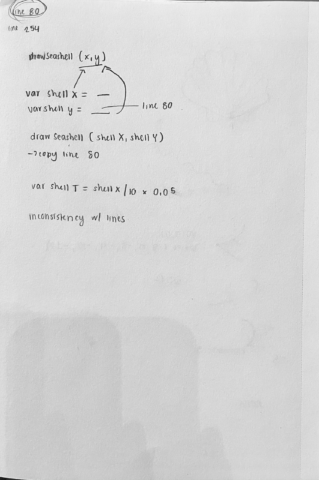 line 80
line 254
drawSeashell (x,y)
var shell X = __
var shell y = __ line 80
draw seashell ( shell X, shell Y )
→ copy line 80
var shell T = shell X / 10 × 0.05
inconsistency w/ lines